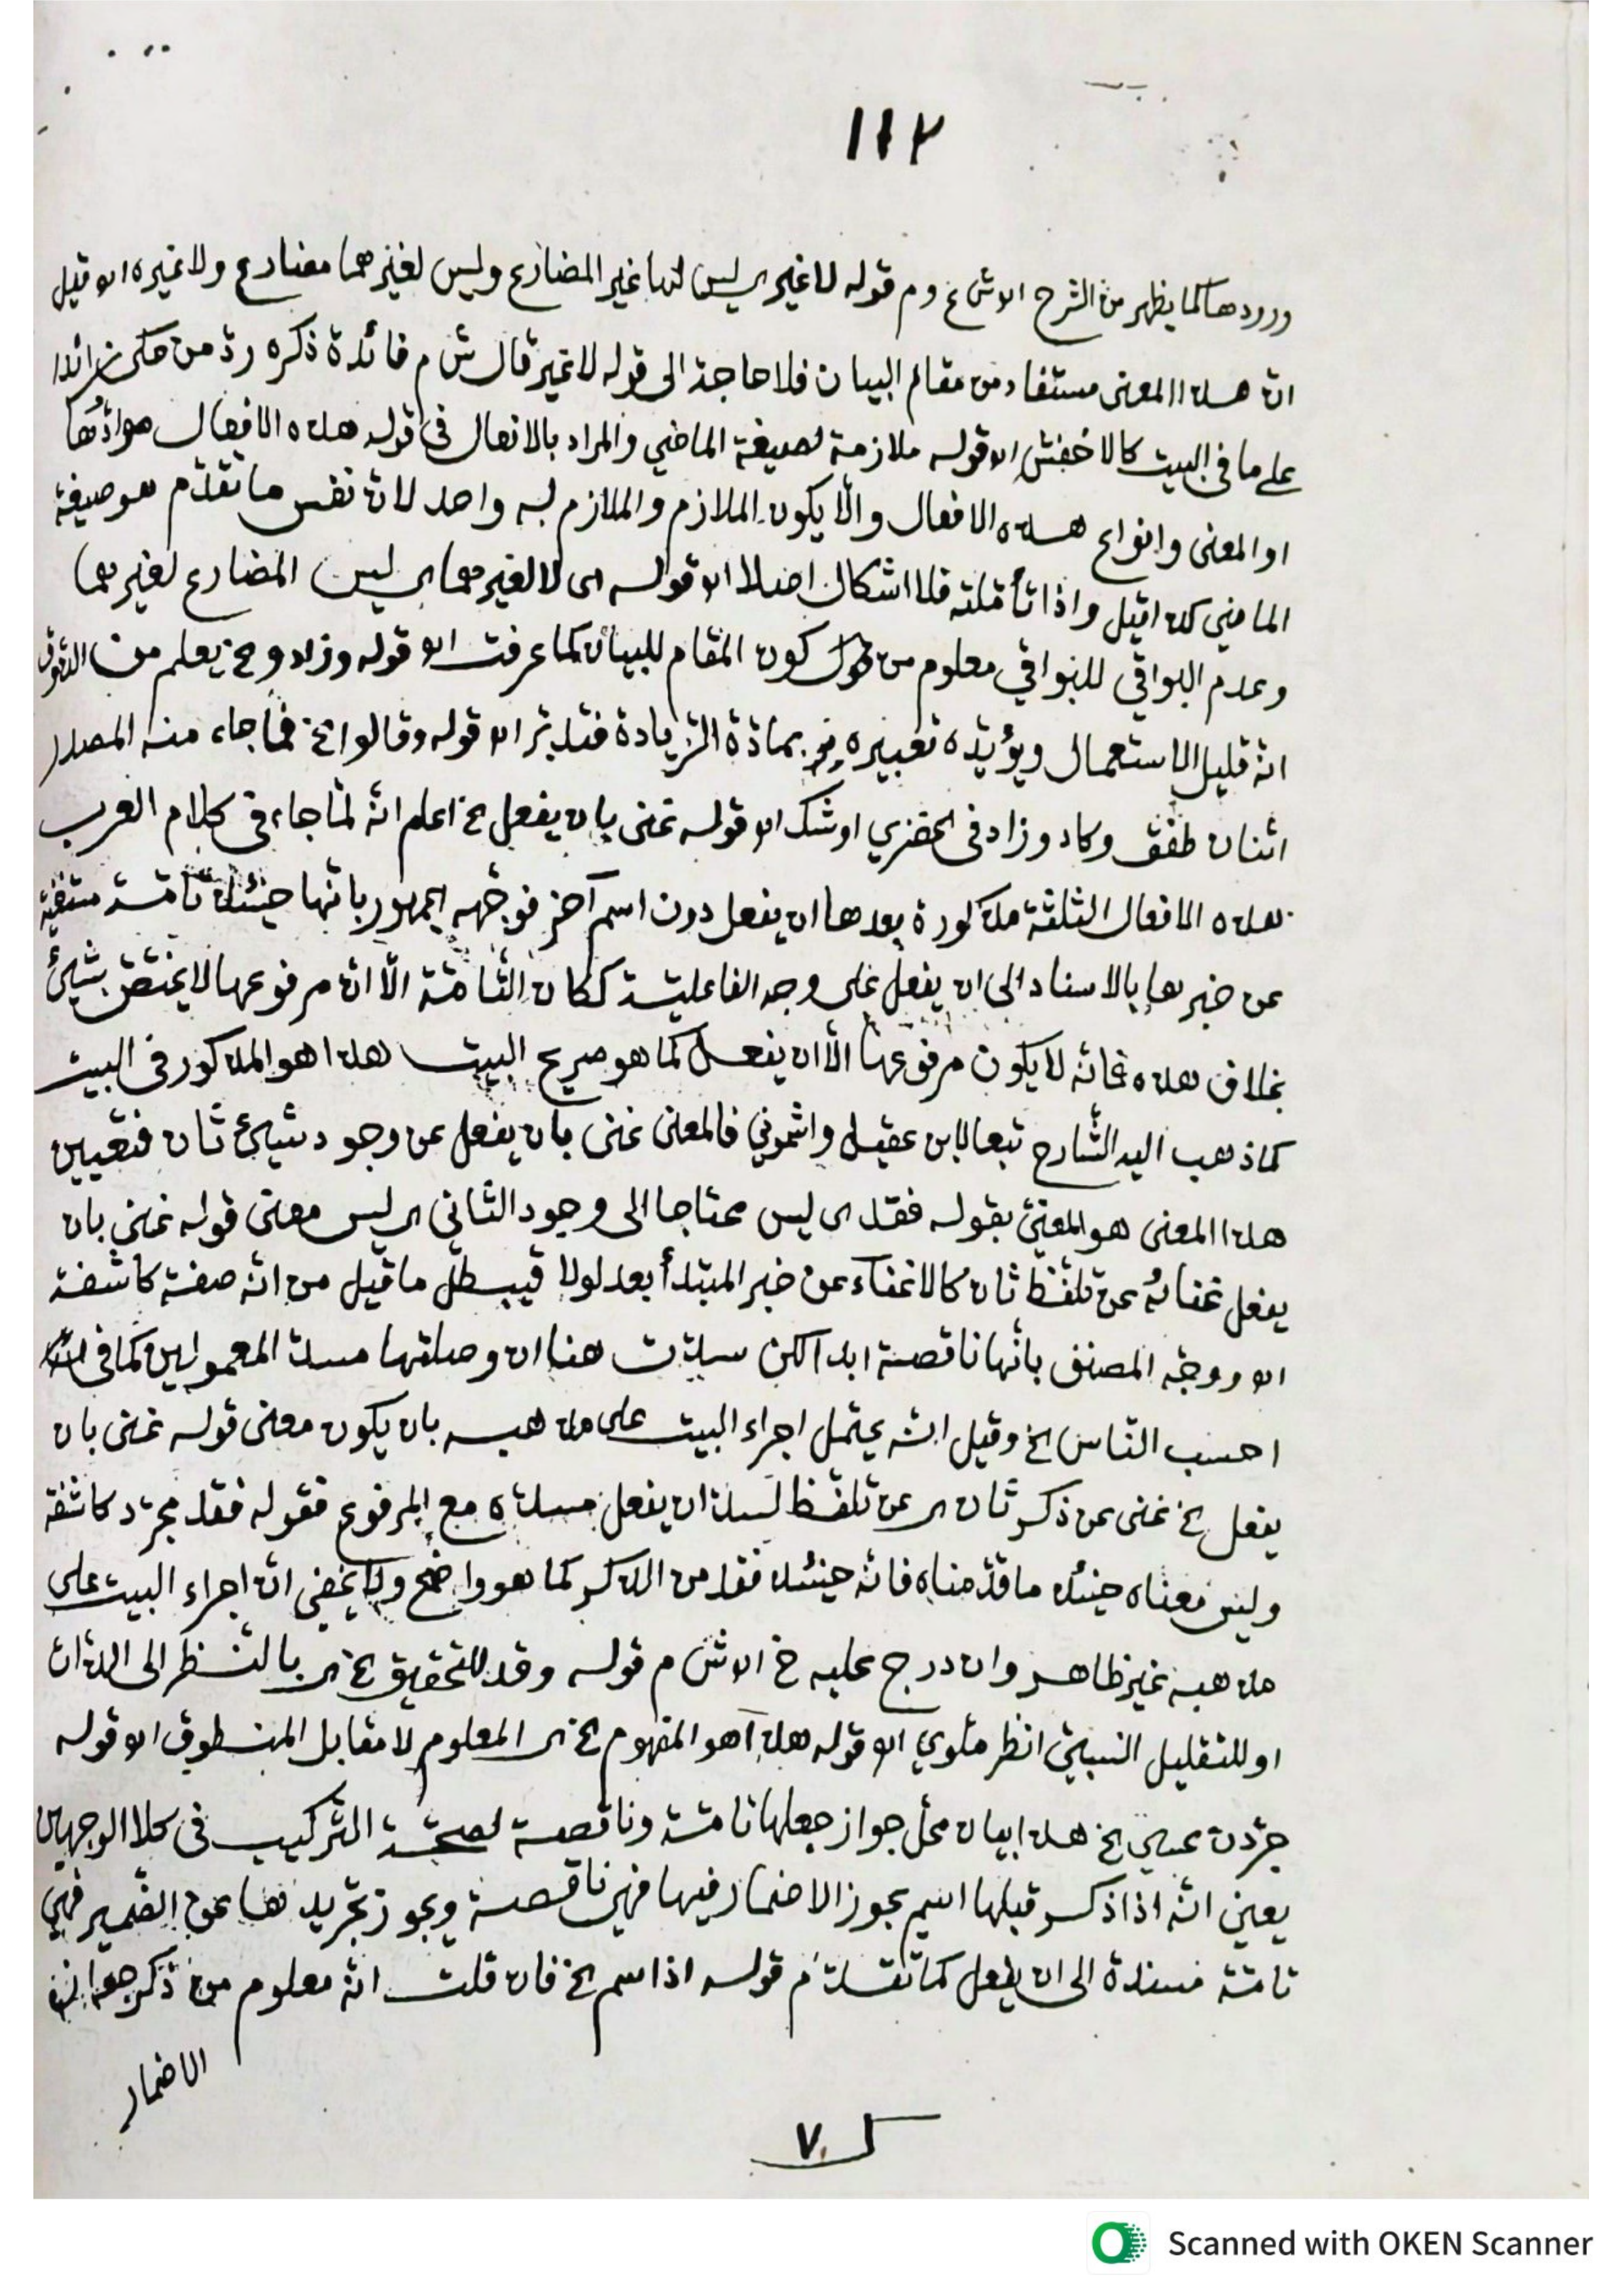 ١١٢
ورودها كما يظهر من الشرح قوله لا غير ى ليس لها غير المضارع وليس لغيرهما مضارع ولا غيره قيل
ان هذا المعنى مستفاد من مقام البيان فلا حاجة الى قوله لا غير قال ش م فائدة ذكره ردّ من حكى زائدا
على ما فى البيت كالاخفش قوله ملازمة لصيغة الماضي والمراد بالافعال فى قوله هذه الافعال موادّها
او المعنى وانواع هذه الافعال والّا يكون الملازم والملازم له واحد لان نفس ما تقدّم هو صيغة
الماضي كذا قيل واذا تأمّلته فلا اشكال اصلا قوله اى لا لغيرهما ى ليس المضارع لغيرهما
وعدم البواقي للبواقي معلوم من كون المقام للبيان كما عرفت قوله وزادوخ يعلم من
انه قليل الاستعمال ويؤيّده تعبيره بمادّة الزيادة فتدبّر قوله وقالوا خ فما جاء منه المصدر
اثنان طفق وكاد وزاد فى الخضري اوشك قوله غنى بان يفعل خ اعلم انّه لمّا جاء فى كلام العرب
هذه الافعال الثلثة مذكورة بعدها ان يفعل دون اسم آخر فوجّهه الجمهور بانّها حينئذ تامّة
عن خبرها بالاسناد الى ان يفعل على وجه الفاعليّة ككان التّامّة الّا ان مرفوعها لا يختصّ بشيئ
بخلاف هذه فانّه لا يكون مرفوعها الّا ان يفعل كما هو صريح البيت هذا هو المذكور فى البيت
كما ذهب اليه الشّارح تبعا لابن عقيل واشموني فالمعنى غنى بان يفعل عن وجود شيئ ثان فتعيين
هذا المعنى هو المعنيّ بقوله فقد ى ليس محتاجا الى وجود الثّانى ى ليس معنى قوله غنى بان
يفعل غناؤه عن تلفّظ ثان كالاغناء عن خبر المبتدأ بعد لولا فيبطل ما قيل من انّه صفة كاشفة
ووجّه المصنف بانّها ناقصة ابدا لكن سدّت هنا ان وصلتها مسدّ المعمولين كما فى
احسب النّاس الخ وقيل انّه يحتمل اجراء البيت على مذهبه بان يكون معنى قوله غنى بان
يفعل خ غنى عن ذكر ثان ى عن تلفّظ لسدّ ان يفعل مسدّه مع المرفوع فقوله فقد مجرّد كاشفة
وليس معناه حينئذ ما قدّمناه فانّه حينئذ فقد من الذكر كما هو واضح ولا يخفى انّ اجراء البيت على
مذهبه غير ظاهر وان درج عليه خ قوله وقد للتحقيق خ ى بالنّظر الى الذّات
او للتقليل النسبيّ انظر ملوي قوله هذا هو المفهوم خ ى المعلوم لا مقابل المنطوق قوله
جرّدن عسى خ هذا بيان محل جواز جعلها تامّة وناقصة لصحّة التّركيب فى كلا الوجهين
يعني انّه اذا ذكر قبلها اسم يجوز الاضمار فيها فهي ناقصة ويجوز تجريدها عن الضّمير فهي
تامّة مسندة الى ان يفعل كما تقدّم قوله اذا اسم خ فان قلت انّه معلوم من ذكر
الاضمار
٧
Scanned with OKEN Scanner